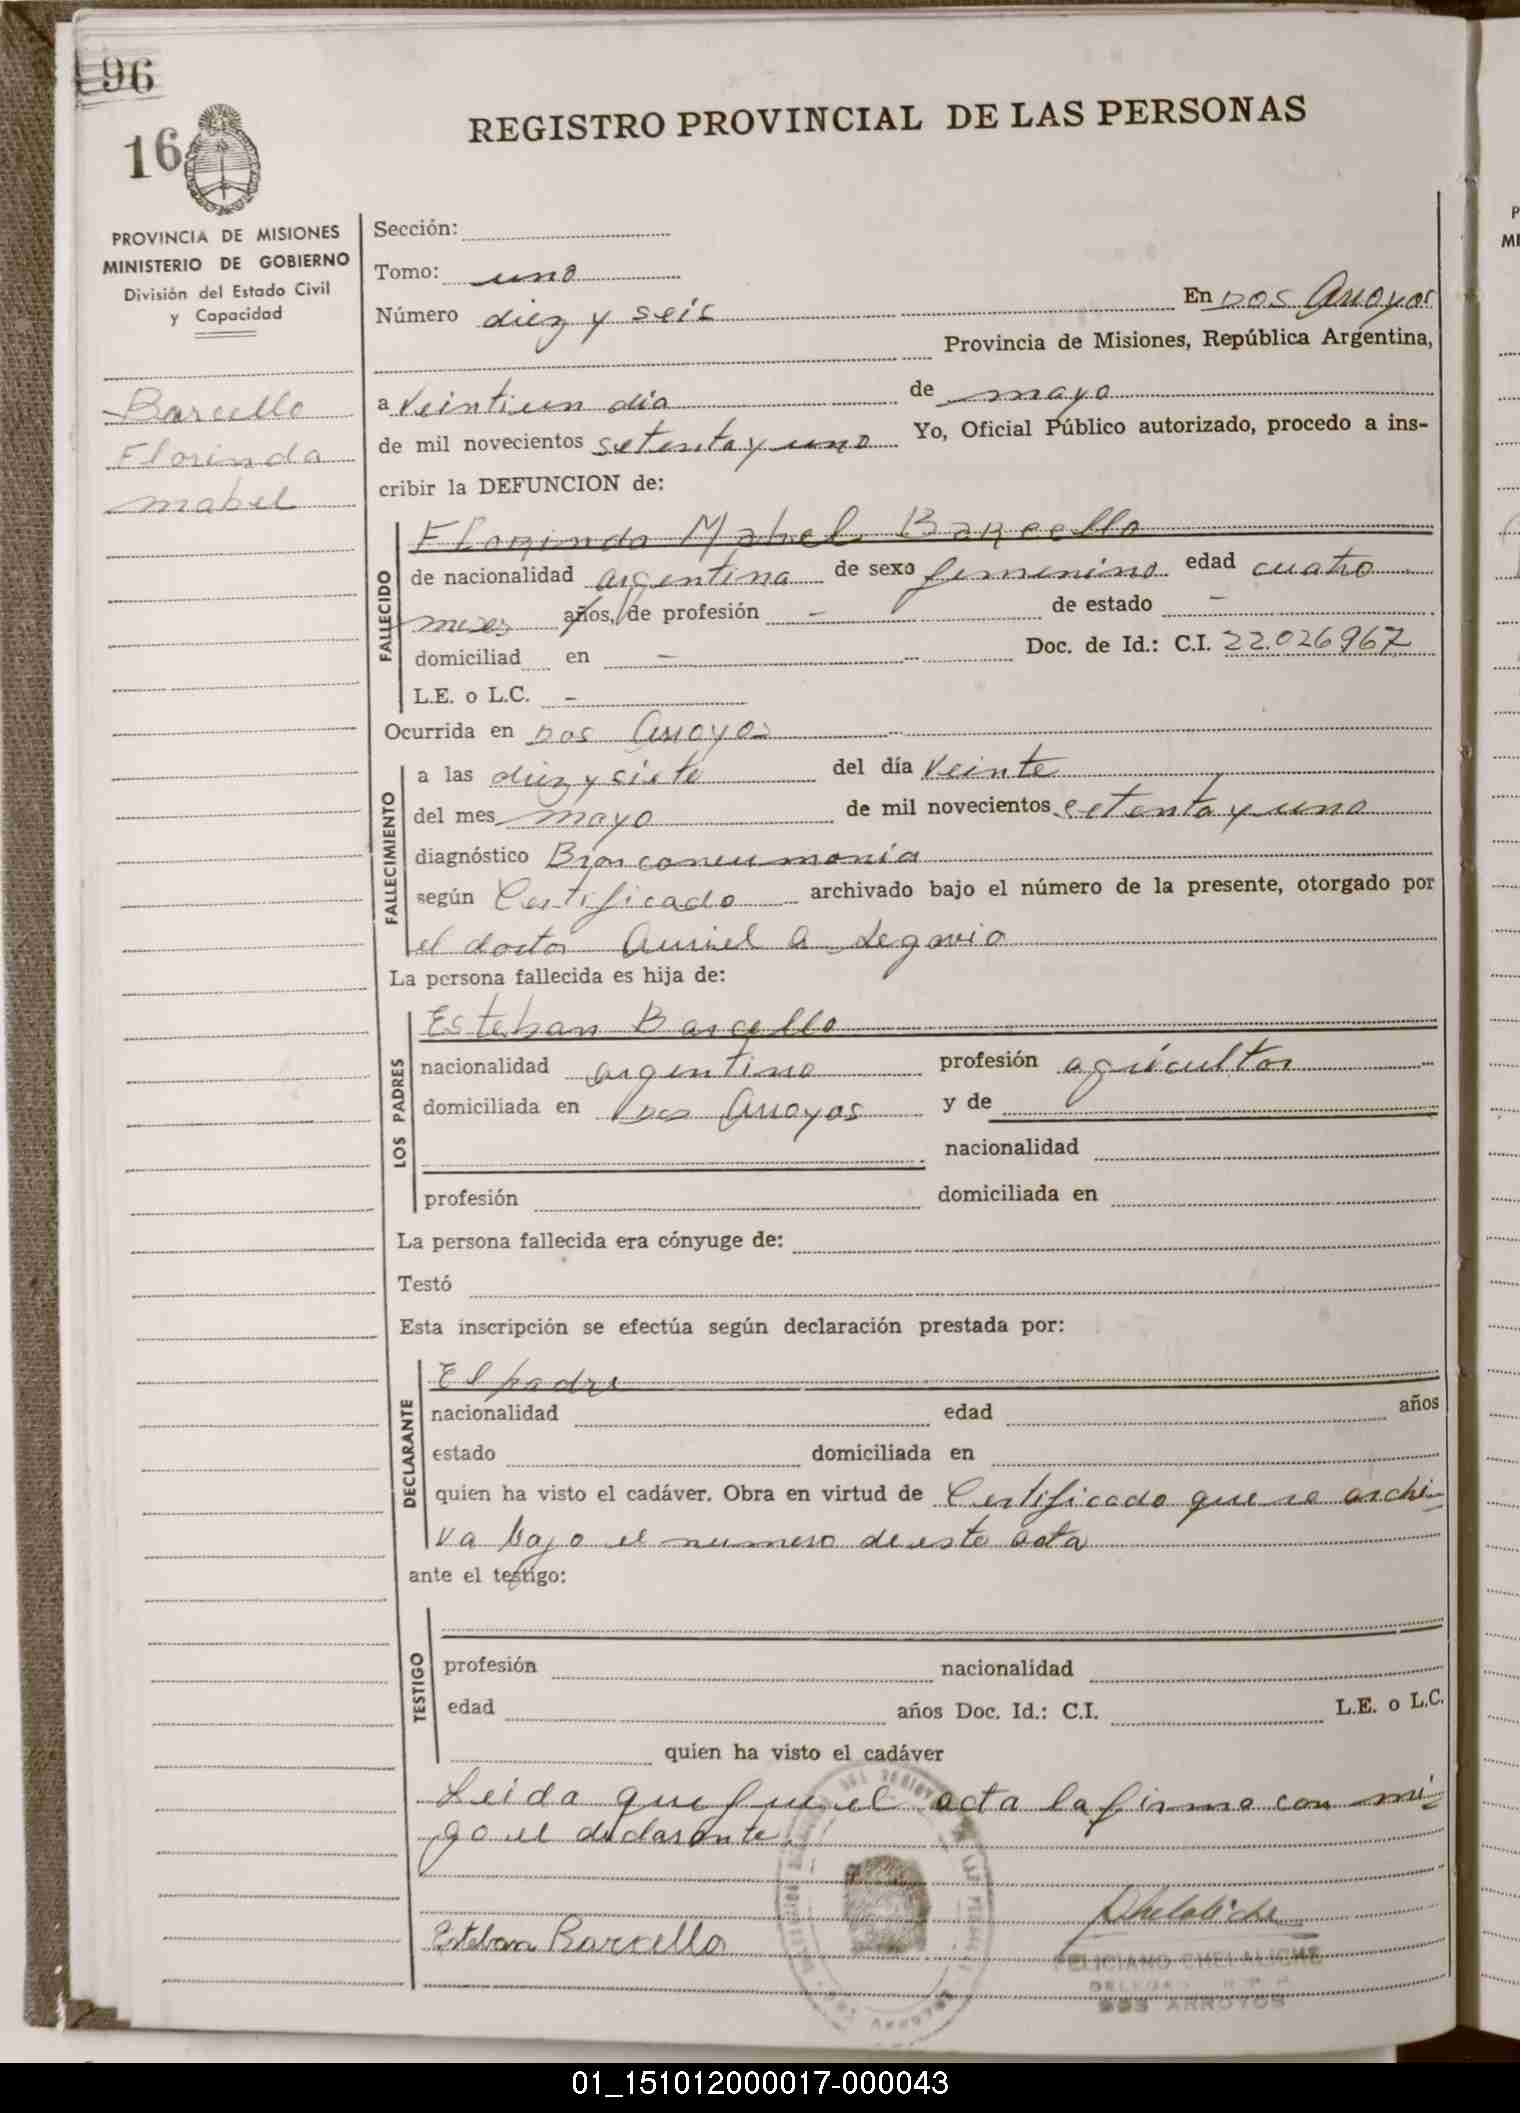 96
16
REGISTRO PROVINCIAL DE LAS PERSONAS
PROVINCIA DE MISIONES
MINISTERIO DE GOBIERNO
División del Estado Civil
y Capacidad
Barcello
Florinda
mabel
Sección:
Tomo: uno
Número diez y seis En Dos Arroyos
Provincia de Misiones, República Argentina,
a veintiun dia de mayo
de mil novecientos setenta y uno Yo, Oficial Público autorizado, procedo a ins-
cribir la DEFUNCION de:
FALLECIDO
Florinda Mabel Barcello
de nacionalidad argentina de sexo femenino edad cuatro
meses años, de profesión - de estado -
domiciliad en - Doc. de Id.: C.I. 22.026967
L.E. o L.C. -
Ocurrida en Dos Arroyos
FALLECIMIENTO
a las diez y siete del día veinte
del mes mayo de mil novecientos setenta y uno
diagnóstico Bronconeumonia
según Certificado archivado bajo el número de la presente, otorgado por
el doctor A
La persona fallecida es hija de:
LOS PADRES
Esteban Barcello
nacionalidad argentino profesión agricultor
domiciliada en Dos Arroyos y de
nacionalidad
profesión domiciliada en
La persona fallecida era cónyuge de:
Testó
Esta inscripción se efectúa según declaración prestada por:
DECLARANTE
El padre
nacionalidad edad años
estado domiciliada en
quien ha visto el cadáver. Obra en virtud de Certificado que se archi-
va bajo el numero de esta acta
ante el testigo:
TESTIGO
profesión nacionalidad
edad años Doc. Id.: C.I. L.E. o L.C.
quien ha visto el cadáver
Leida que fue el acta la firma con mi-
go el declarante.
Esteban Barcello
FELICIANO CHELALICHE
DOS ARROYOS
01_151012000017-000043